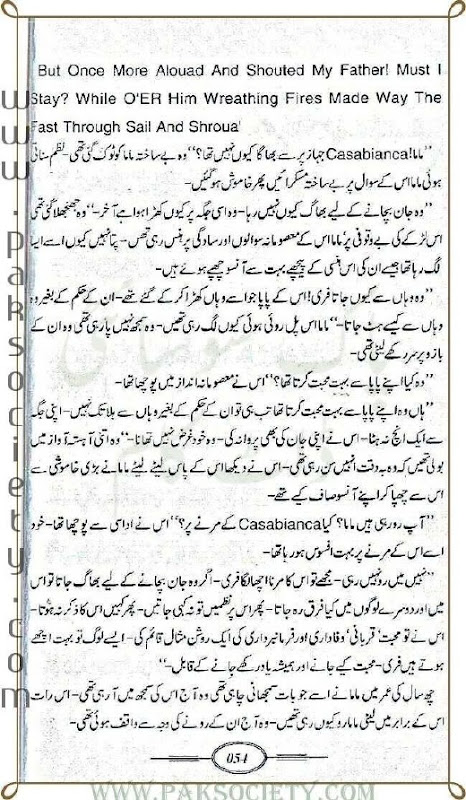 But Once More Alouad And Shouted My Father! Must I
Stay? While O'ER Him Wreathing Fires Made Way The
Fast Through Sail And Shroua'
’’ماما! Casabianca جہاز پر سے بھاگا کیوں نہیں تھا؟‘‘ وہ بے ساختہ ماما کو ٹوک گئی تھی۔ نظم سناتی
ہوئی ماما اس کے سوال پر بے ساختہ مسکرائیں پھر خاموش ہو گئیں۔
’’وہ جان بچانے کے لیے بھاگ کیوں نہیں رہا۔ وہ اسی جگہ پر کیوں کھڑا ہوا ہے آخر۔‘‘ وہ جھنجھلا گئی تھی
اس لڑکے کی بے وقوفی پر‘ ماما اس کے معصومانہ سوالوں اور سادگی پر ہنس رہی تھیں۔ پتا نہیں کیوں اسے ایسا
لگ رہا تھا جیسے ان کی اس ہنسی کے پیچھے بہت سے آنسو چھپے ہوئے ہیں۔
’’وہ وہاں سے کیوں جاتا فری! اس کے پاپا جو اسے وہاں کھڑا کر کے گئے تھے۔ ان کے حکم کے بغیر وہ
وہاں سے کیسے ہٹ جاتا۔‘‘ ماما اس پل روئی ہوئی کیوں لگ رہی تھیں۔ وہ سمجھ نہیں پا رہی تھی وہ ان کے
بازو پر سر رکھے لیٹی تھی۔
’’وہ کیا اپنے پاپا سے بہت محبت کرتا تھا؟‘‘ اس نے معصومانہ انداز میں پوچھا تھا۔
’’ہاں وہ اپنے پاپا سے بہت محبت کرتا تھا تب ہی تو ان کے حکم کے بغیر وہاں سے ہلا تک نہیں۔ اپنی جگہ
سے ایک انچ نہ ہٹا۔ اس نے اپنی جان کی بھی پروا نہ کی۔ وہ خود غرض نہیں تھا نا۔‘‘ وہ اتنی آہستہ آواز میں
بولی تھیں کہ وہ بہ دقت انہیں سن رہی تھی۔ اس نے دیکھا اس کے پاس لیٹے لیٹے ماما نے بڑی خاموشی سے
اس سے چھپا کر اپنے آنسو صاف کیے تھے۔
’’آپ رو رہی ہیں ماما؟ کیا Casabianca کے مرنے پر؟‘‘ اس نے اداسی سے پوچھا تھا۔ خود
اسے اس کے مرنے پر بہت افسوس ہو رہا تھا۔
’’نہیں میں رو نہیں رہی۔ مجھے تو اس کا مرنا اچھا لگا فری۔ اگر وہ جان بچانے کے لیے بھاگ جاتا تو اس
میں اور دوسرے لوگوں میں کیا فرق رہ جاتا۔ پھر اس پر نظمیں تو نہ کہی جاتیں۔ پھر کہیں اس کا ذکر نہ ہوتا۔
اس نے تو محبت‘ قربانی‘ وفاداری اور فرمانبرداری کی ایک روشن مثال قائم کی۔ ایسے لوگ تو بہت اچھے
ہوتے ہیں فری۔ محبت کیے جانے اور ہمیشہ یاد رکھے جانے کے قابل۔‘‘
چھ سال کی عمر میں ماما نے اسے جو بات سمجھانی چاہی تھی وہ آج اس کی سمجھ میں آ رہی تھی۔ اس رات
اس کے برابر میں لیٹی ماما رو کیوں رہی تھیں۔ وہ آج ان کے رونے کی وجہ سے واقف ہوئی تھی۔
054
www.paksociety.com
WWW.PAKSOCIETY.COM